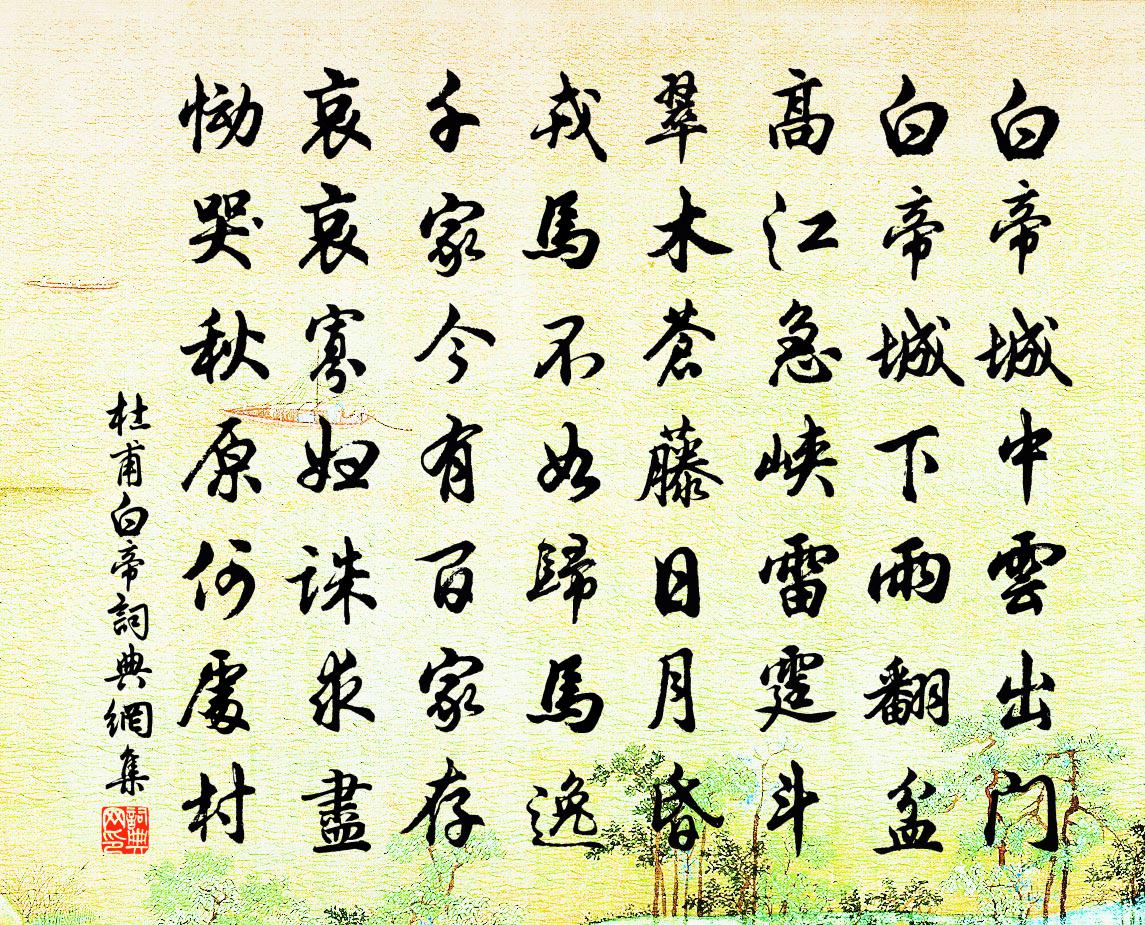 白帝城中雲出门
白帝城下雨翻盆
髙江急峽雷霆斗
翠木蒼藤日月昏
戎馬不如歸馬逸
千家今有百家存
哀哀寡妇誅求盡
恸哭秋原何處村
杜甫白帝詞典網集
詞典网印